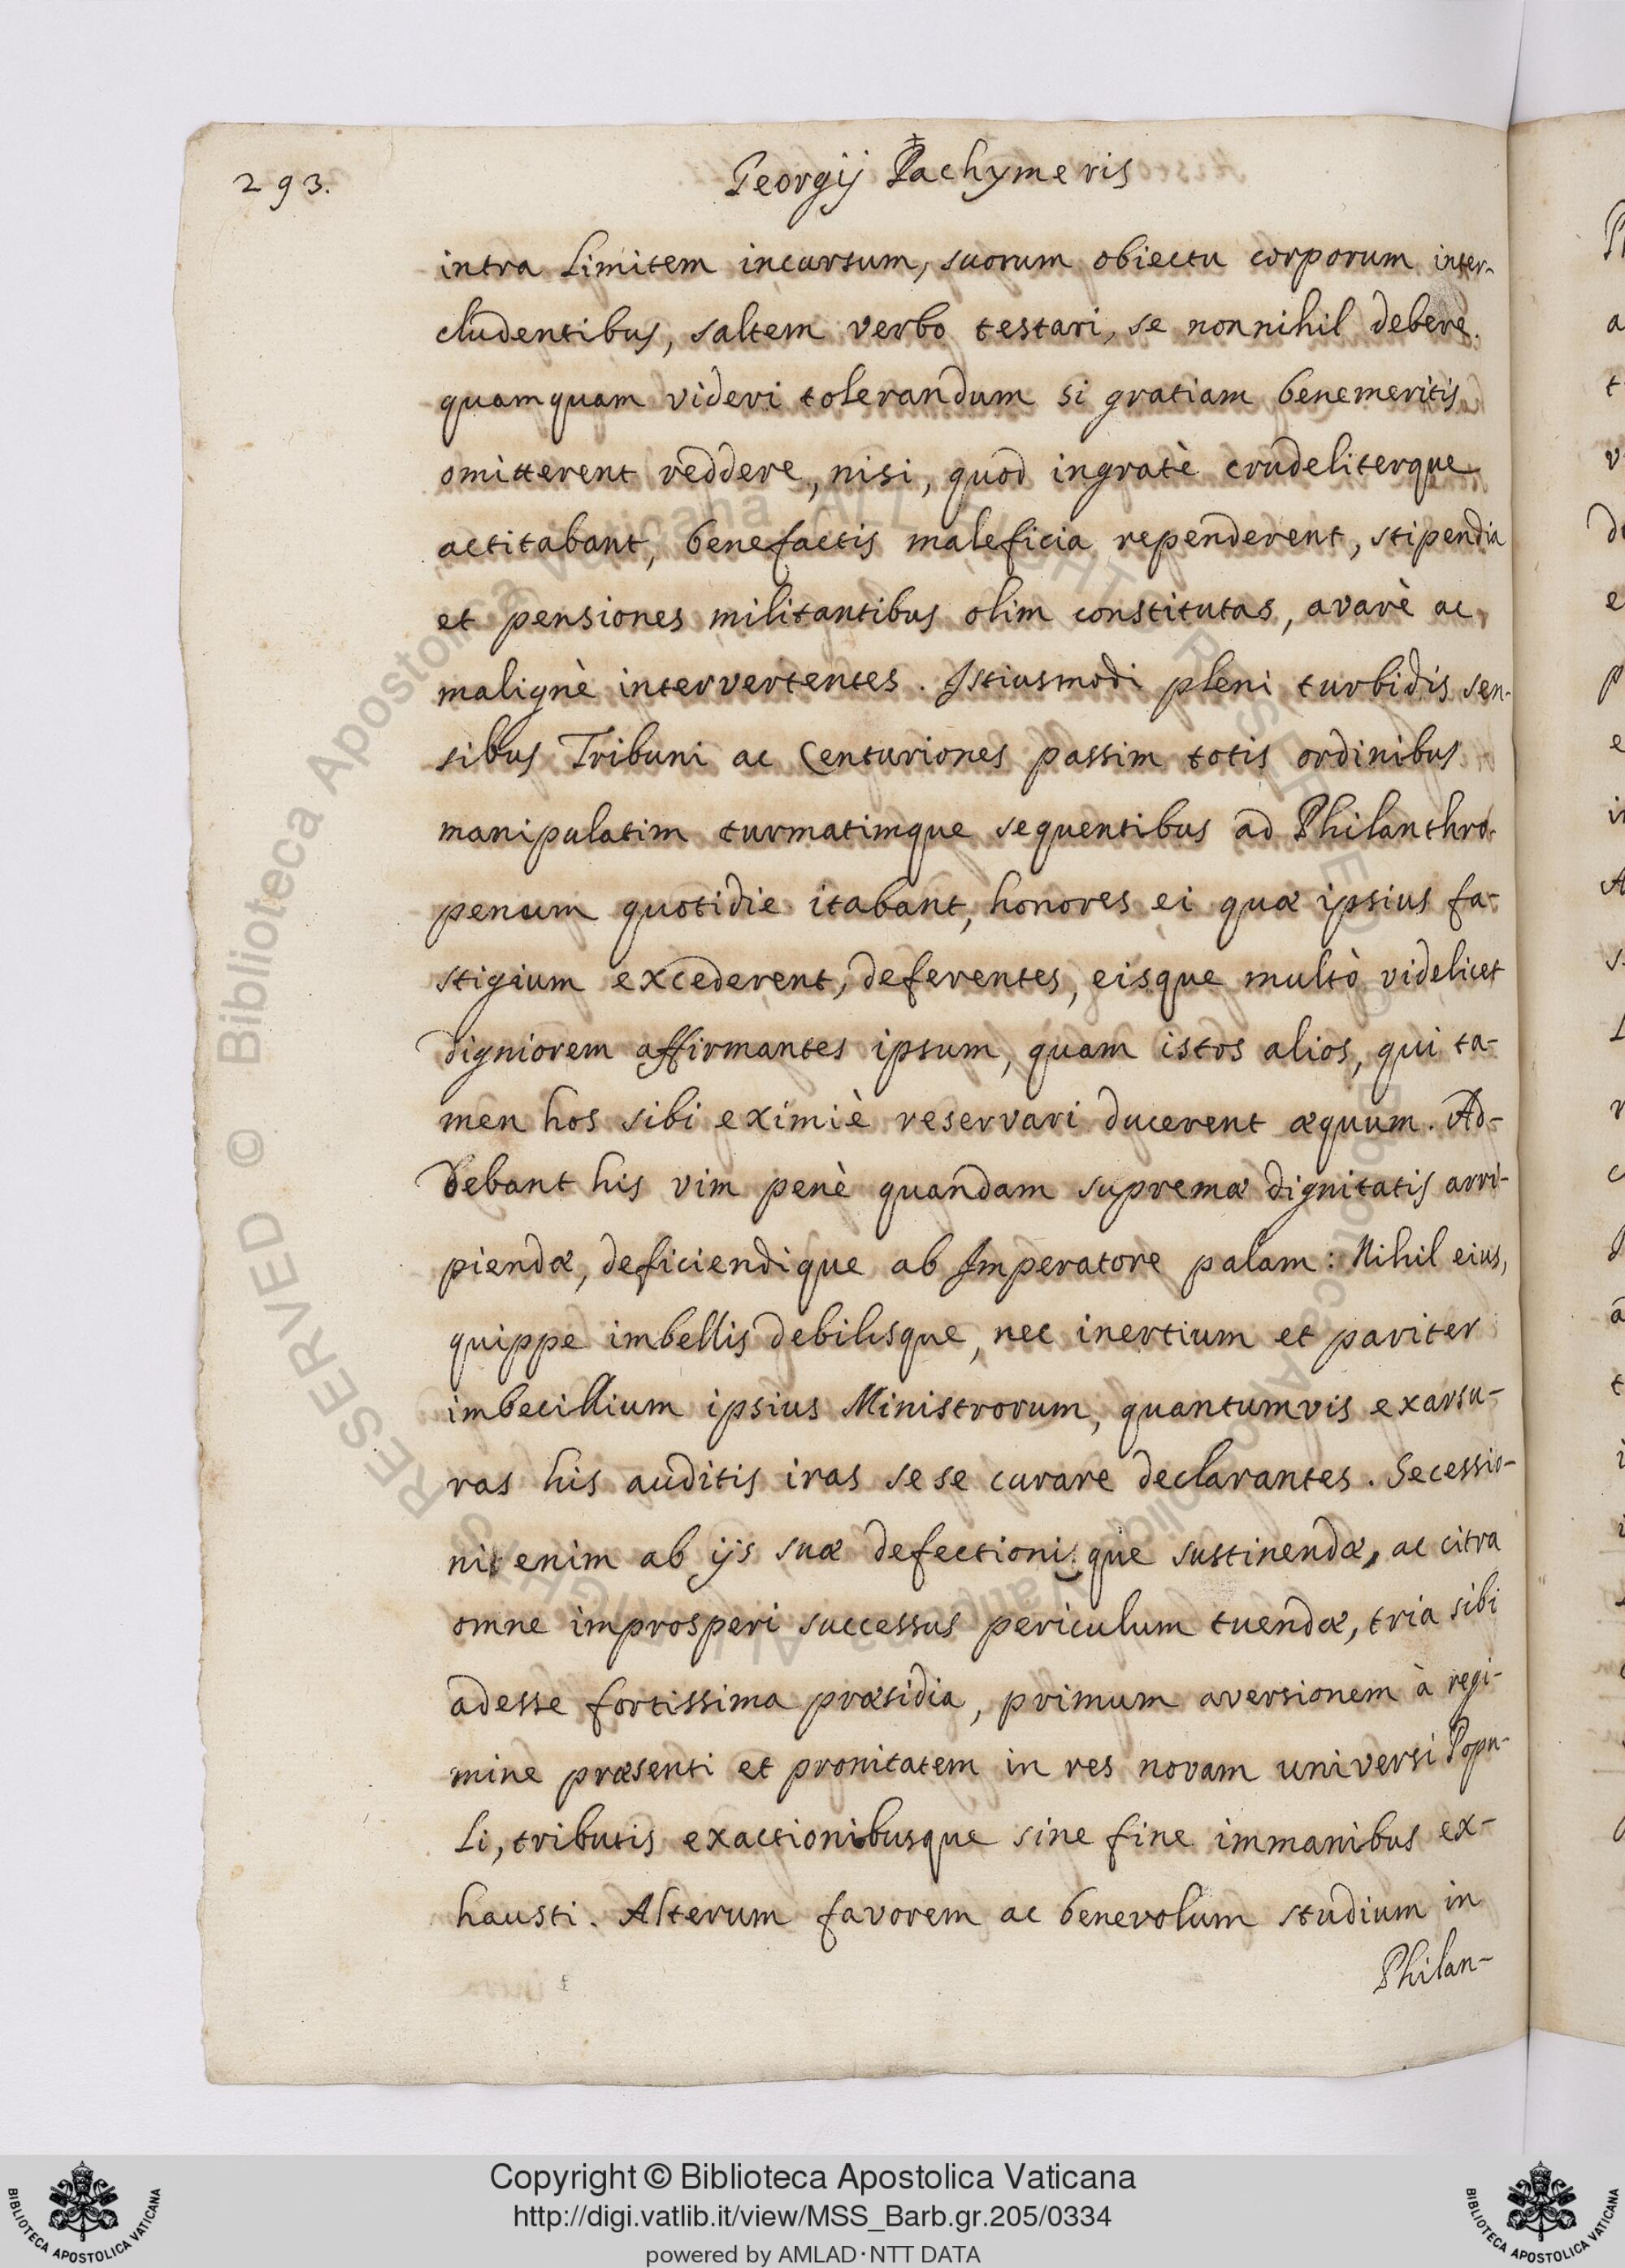 293.
Georgij Pachymeris
intra limitem incursum, suorum obiectu corporum inter-
cludentibus, saltem verbo testari, se nonnihil debere.
quamquam videri tolerandum si gratiam benemeritis
omitterent reddere, nisi, quod ingratè crudeliterque
actitabant, benefactis maleficia rependerent, stipendia
et pensiones militantibus olim constitutas, avarè ac
malignè intervertentes. Istiusmodi pleni turbidis sen-
sibus Tribuni ac Centuriones passim totis ordinibus
manipulatim turmatimque sequentibus ad Philanthro-
penum quotidie itabant, honores ei quæ ipsius fa-
stigium excederent, deferentes, eisque multò videlicet
digniorem affirmantes ipsum, quam istos alios, qui ta-
men hos sibi eximiè reservari ducerent æquum. Ad-
debant his vim penè quandam supremæ dignitatis arri-
piendæ, deficiendique ab Imperatore palam: Nihil eius,
quippe imbellis debilisque, nec inertium et pariter
imbecillium ipsius Ministrorum, quantumvis exarsu-
ras his auditis iras sese curare declarantes. Secessio-
ni enim ab ijs suæ defectionique sustinendæ, ac citra
omne improsperi successus periculum tuendæ, tria sibi
adesse fortissima præsidia, primum aversionem à regi-
mine præsenti et pronitatem in res novam universi Popu-
li, tributis exactionibusque sine fine immanibus ex-
hausti. Alterum favorem ac benevolum studium in
Philan-
Copyright © Biblioteca Apostolica Vaticana
http://digi.vatlib.it/view/MSS_Barb.gr.205/0334
powered by AMLAD·NTT DATA